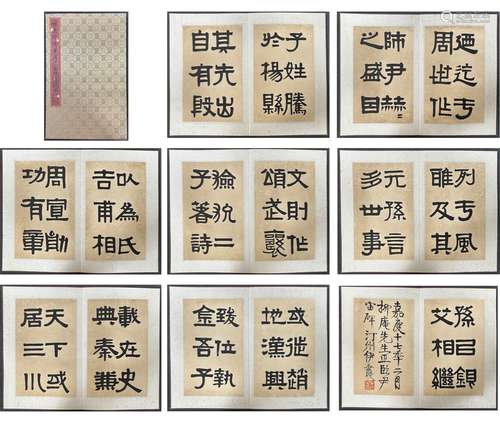 子姓騰
於楊縣
其先出
自有殷
迺迄于
周世作
師尹赫=
之盛因
以為氏
吉甫相
周宣勛
功有章
文則作
頌武襄
獫狁二
子著詩
列于風
雅及其
元孫言
多世事
載在史
典秦兼
天下或
居三川
或徙趙
地漢興
致位執
金吾子
孫以銀
艾相繼
嘉慶十七年二月
柳庵先生正臨尹
宙碑 汀州伊秉綬